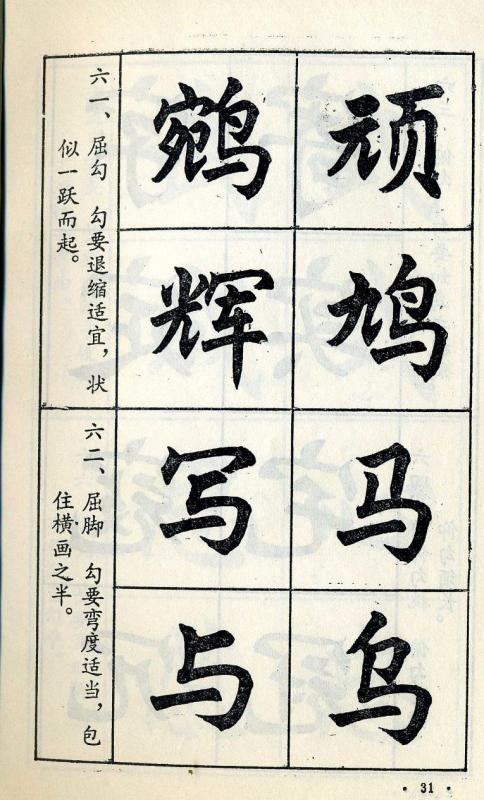 顽鸠
鹓辉
六一、屈勾 勾要退缩适宜，状
似一跃而起。
马乌
写与
六二、屈脚 勾要弯度适当，包
住横画之半。
· 31 ·